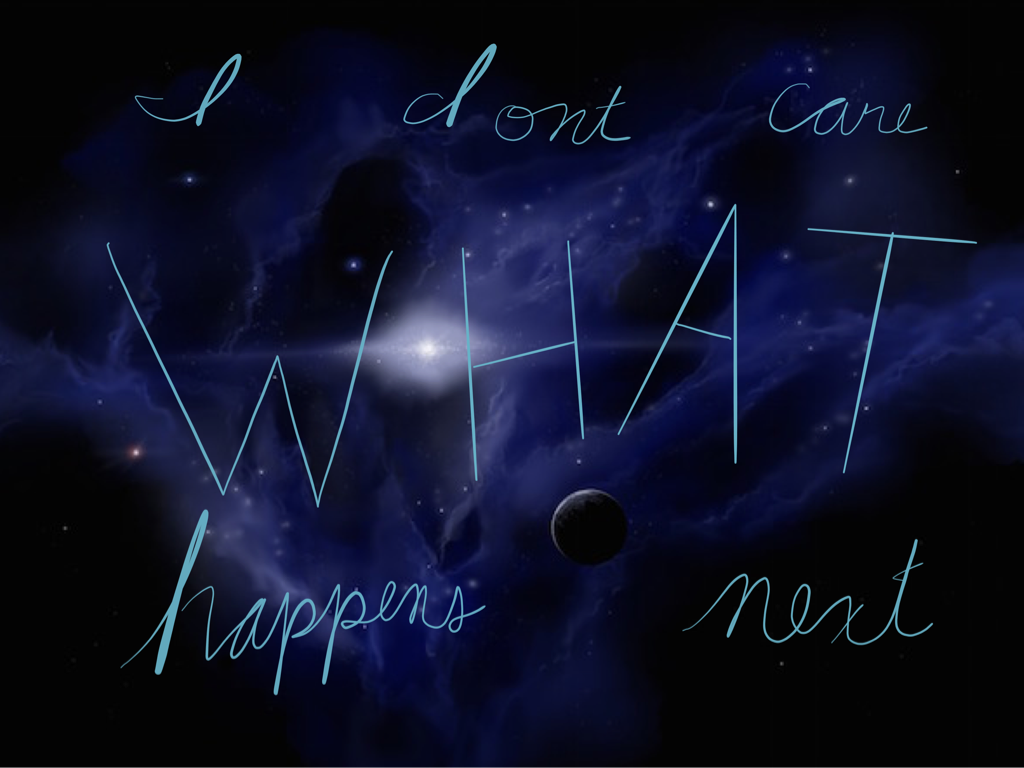 I dont care
WHAT
happens next